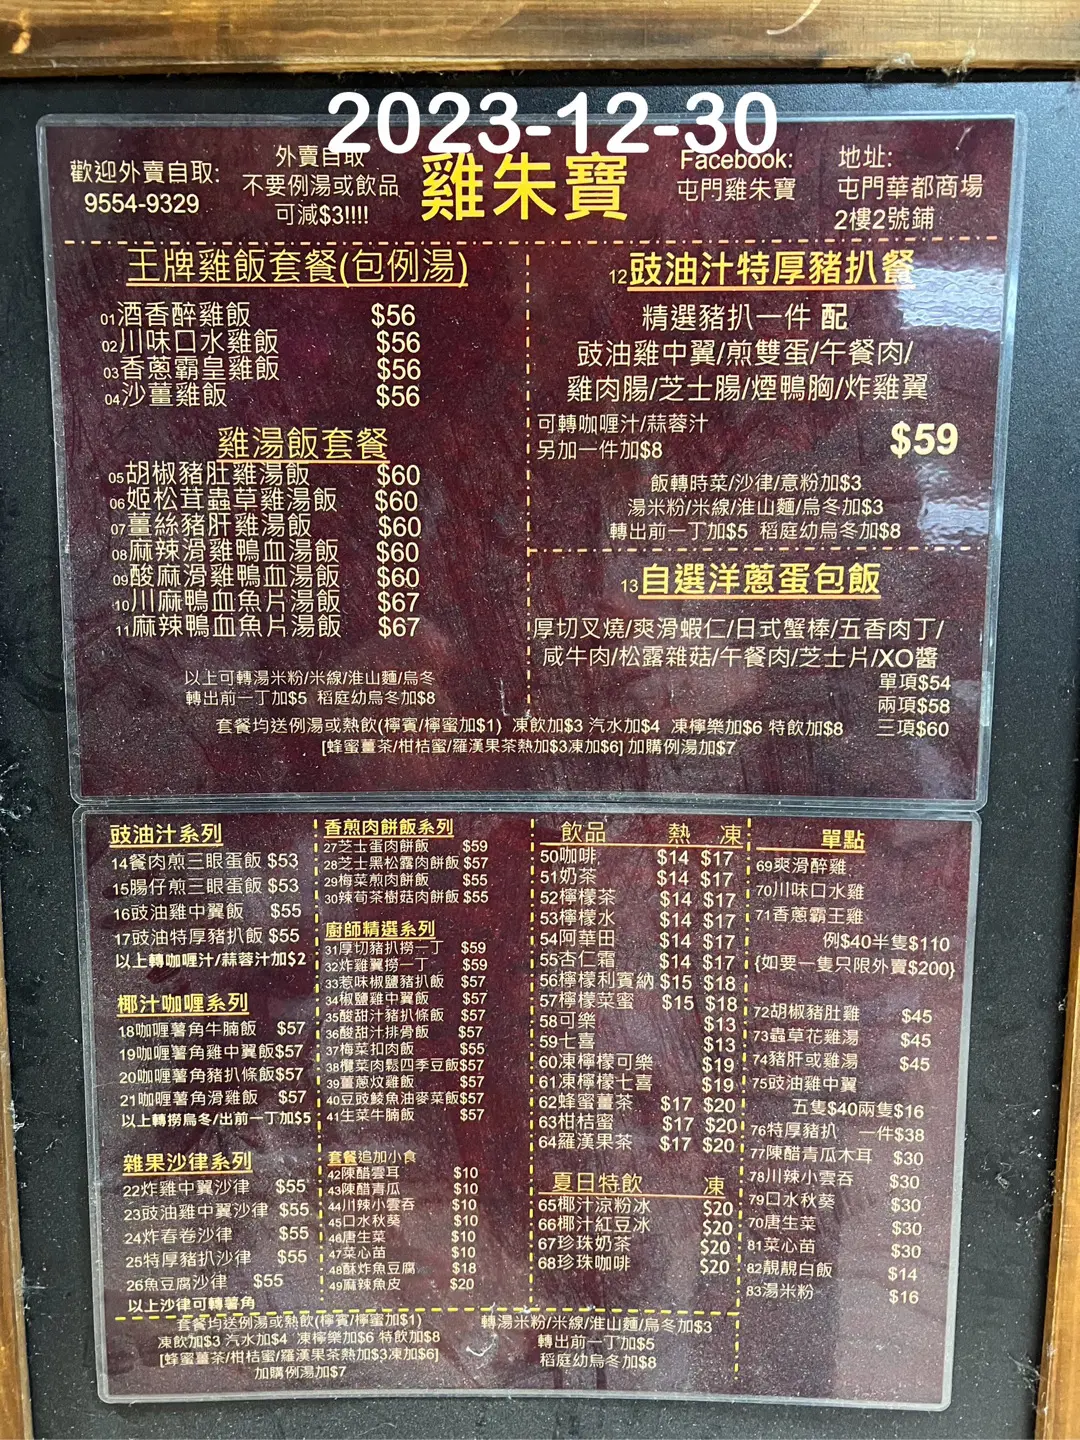 2023-12-30
歡迎外賣自取:
9554-9329
外賣自取
不要例湯或飲品
可減$3!!!!
雞朱寶
Facebook:
屯門雞朱寶
地址:
屯門華都商場
2樓2號鋪
王牌雞飯套餐(包例湯)
01酒香醉雞飯 $56
02川味口水雞飯 $56
03香蔥霸皇雞飯 $56
04沙薑雞飯 $56
雞湯飯套餐
05胡椒豬肚雞湯飯 $60
06姬松茸蟲草雞湯飯 $60
07薑絲豬肝雞湯飯 $60
08麻辣滑雞鴨血湯飯 $60
09酸麻滑雞鴨血湯飯 $60
10川麻鴨血魚片湯飯 $67
11麻辣鴨血魚片湯飯 $67
以上可轉湯米粉/米線/淮山麵/烏冬
轉出前一丁加$5 稻庭幼烏冬加$8
12豉油汁特厚豬扒餐
精選豬扒一件 配
豉油雞中翼/煎雙蛋/午餐肉/
雞肉腸/芝士腸/煙鴨胸/炸雞翼
可轉咖喱汁/蒜蓉汁
另加一件加$8
$59
飯轉時菜/沙律/意粉加$3
湯米粉/米線/淮山麵/烏冬加$3
轉出前一丁加$5 稻庭幼烏冬加$8
13自選洋蔥蛋包飯
厚切叉燒/爽滑蝦仁/日式蟹棒/五香肉丁/
咸牛肉/松露雜菇/午餐肉/芝士片/XO醬
單項$54
兩項$58
三項$60
套餐均送例湯或熱飲(檸賓/檸蜜加$1) 凍飲加$3 汽水加$4 凍檸樂加$6 特飲加$8
[蜂蜜薑茶/柑桔蜜/羅漢果茶熱加$3凍加$6] 加購例湯加$7
豉油汁系列
14餐肉煎三眼蛋飯 $53
15腸仔煎三眼蛋飯 $53
16豉油雞中翼飯 $55
17豉油特厚豬扒飯 $55
以上轉咖喱汁/蒜蓉汁加$2
椰汁咖喱系列
18咖喱薯角牛腩飯 $57
19咖喱薯角雞中翼飯$57
20咖喱薯角豬扒條飯$57
21咖喱薯角滑雞飯 $57
以上轉撈烏冬/出前一丁加$5
雜果沙律系列
22炸雞中翼沙律 $55
23豉油雞中翼沙律 $55
24炸春卷沙律 $55
25特厚豬扒沙律 $55
26魚豆腐沙律 $55
以上沙律可轉薯角
香煎肉餅飯系列
27芝士蛋肉餅飯 $59
28芝士黑松露肉餅飯 $57
29梅菜煎肉餅飯 $55
30辣荀茶樹菇肉餅飯 $55
廚師精選系列
31厚切豬扒撈一丁 $59
32炸雞翼撈一丁 $59
33惹味椒鹽豬扒飯 $57
34椒鹽雞中翼飯 $57
35酸甜汁豬扒條飯 $57
36酸甜汁排骨飯 $57
37梅菜扣肉飯 $55
38欖菜肉鬆四季豆飯$57
39薑蔥炆雞飯 $57
40豆豉鯪魚油麥菜飯$57
41生菜牛腩飯 $57
套餐追加小食
42陳醋雲耳 $10
43陳醋青瓜 $10
44川辣小雲吞 $10
45口水秋葵 $10
46唐生菜 $10
47菜心苗 $10
48酥炸魚豆腐 $18
49麻辣魚皮 $20
飲品 熱 凍
50咖啡 $14 $17
51奶茶 $14 $17
52檸檬茶 $14 $17
53檸檬水 $14 $17
54阿華田 $14 $17
55杏仁霜 $14 $17
56檸檬利賓納 $15 $18
57檸檬菜蜜 $15 $18
58可樂 $13
59七喜 $13
60凍檸檬可樂 $19
61凍檸檬七喜 $19
62蜂蜜薑茶 $17 $20
63柑桔蜜 $17 $20
64羅漢果茶 $17 $20
夏日特飲 凍
65椰汁涼粉冰 $20
66椰汁紅豆冰 $20
67珍珠奶茶 $20
68珍珠咖啡 $20
單點
69爽滑醉雞
70川味口水雞
71香蔥霸王雞
例$40半隻$110
{如要一隻只限外賣$200}
72胡椒豬肚雞 $45
73蟲草花雞湯 $45
74豬肝或雞湯 $45
75豉油雞中翼
五隻$40兩隻$16
76特厚豬扒 一件$38
77陳醋青瓜木耳 $30
78川辣小雲吞 $30
79口水秋葵 $30
70唐生菜 $30
81菜心苗 $30
82靚靚白飯 $14
83湯米粉 $16
套餐均送例湯或熱飲(檸賓/檸蜜加$1)
凍飲加$3 汽水加$4 凍檸樂加$6 特飲加$8
[蜂蜜薑茶/柑桔蜜/羅漢果茶熱加$3凍加$6]
加購例湯加$7
轉湯米粉/米線/淮山麵/烏冬加$3
轉出前一丁加$5
稻庭幼烏冬加$8